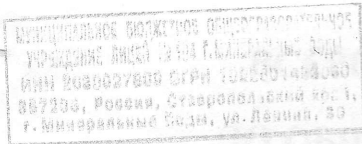 МУНИЦИПАЛЬНОЕ БЮДЖЕТНОЕ ОБЩЕОБРАЗОВАТЕЛЬНОЕ
УЧРЕЖДЕНИЕ ЛИЦЕЙ № 104 Г. МИНЕРАЛЬНЫЕ ВОДЫ
ИНН ОГРН
Россия, Ставропольский край,
г. Минеральные Воды, ул. Ленина,